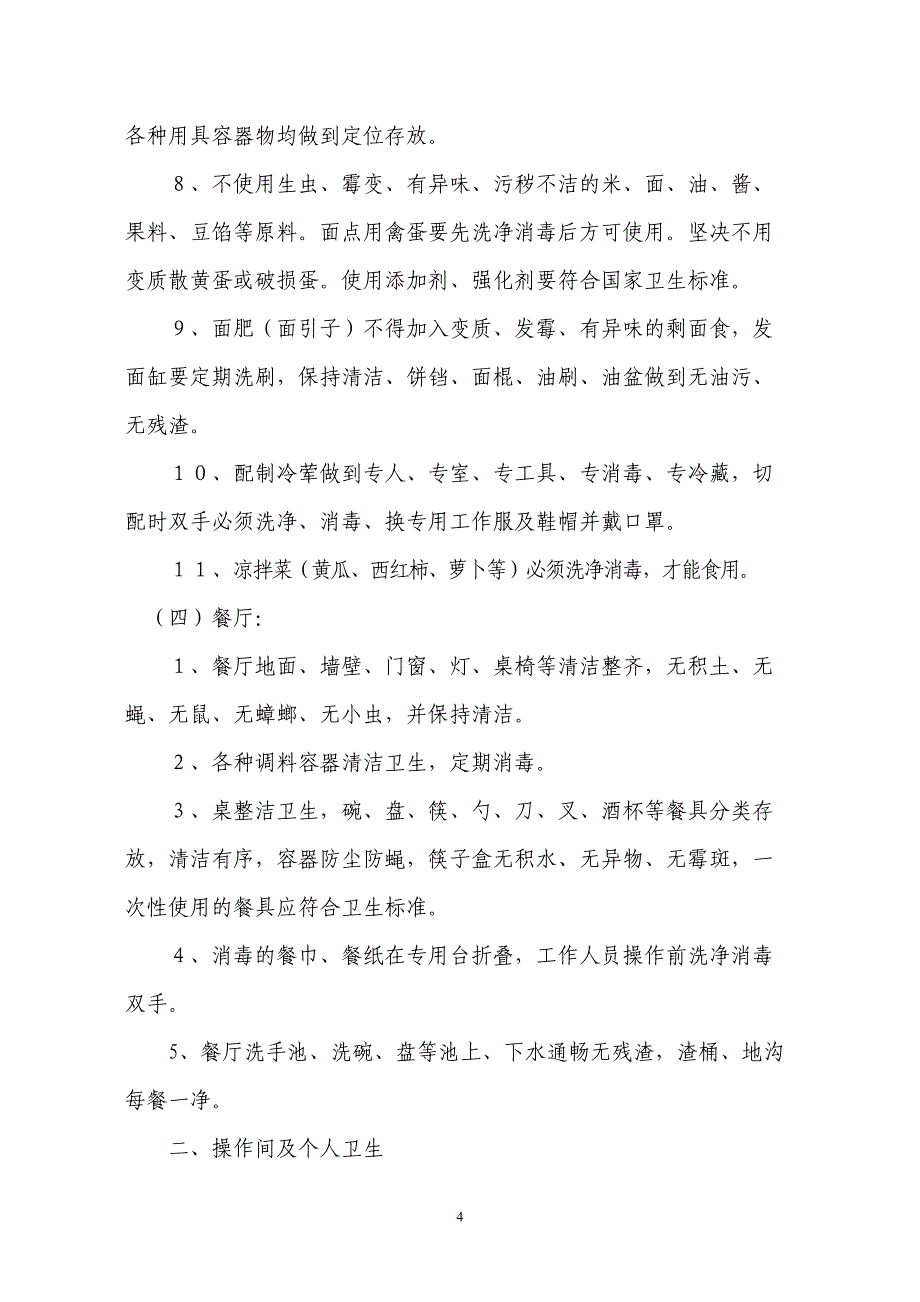 各种用具容器物均做到定位存放。
８、不使用生虫、霉变、有异味、污秽不洁的米、面、油、酱、
果料、豆馅等原料。面点用禽蛋要先洗净消毒后方可使用。坚决不用
变质散黄蛋或破损蛋。使用添加剂、强化剂要符合国家卫生标准。
９、面肥（面引子）不得加入变质、发霉、有异味的剩面食，发
面缸要定期洗刷，保持清洁、饼铛、面棍、油刷、油盆做到无油污、
无残渣。
１０、配制冷荤做到专人、专室、专工具、专消毒、专冷藏，切
配时双手必须洗净、消毒、换专用工作服及鞋帽并戴口罩。
１１、凉拌菜（黄瓜、西红柿、萝卜等）必须洗净消毒，才能食用。
（四）餐厅：
１、餐厅地面、墙壁、门窗、灯、桌椅等清洁整齐，无积土、无
蝇、无鼠、无蟑螂、无小虫，并保持清洁。
２、各种调料容器清洁卫生，定期消毒。
３、桌整洁卫生，碗、盘、筷、勺、刀、叉、酒杯等餐具分类存
放，清洁有序，容器防尘防蝇，筷子盒无积水、无异物、无霉斑，一
次性使用的餐具应符合卫生标准。
４、消毒的餐巾、餐纸在专用台折叠，工作人员操作前洗净消毒
双手。
5、餐厅洗手池、洗碗、盘等池上、下水通畅无残渣，渣桶、地沟
每餐一净。
二、操作间及个人卫生
4